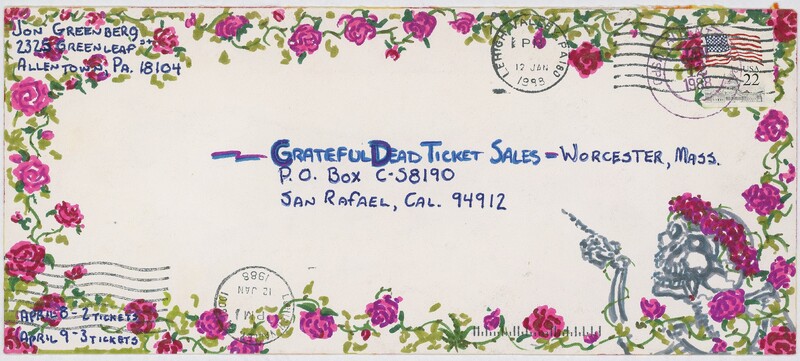 Jon Greenberg
2325 Greenleaf St
Allentown, Pa. 18104
LEHIGH VALLEY PA 180
PM
12 JAN
1988
1988
USA
22
Grateful Dead Ticket Sales - Worcester, Mass.
P.O. Box C-S8190
San Rafael, Cal. 94912
PM
12 JAN
1988
April 8 - 2 tickets
April 9 - 3 tickets